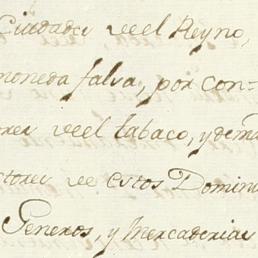 Ciudades de el Reyno,
moneda falsa, por con-
ores de el tabaco, y dema
ctores de estos Domini
Generos, y Mercaderias